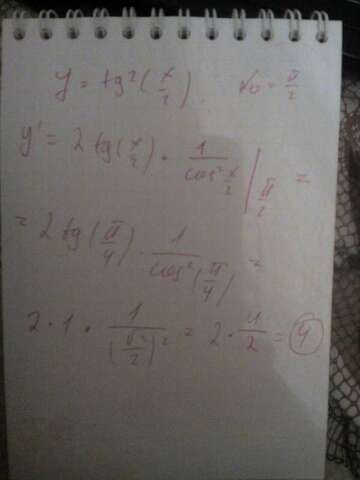 y = tg²(x/2). x₀ = π/2
y' = 2 tg(x/2) · 1/cos² x/2 | π/2 =
= 2 tg(π/4) · 1/cos²(π/4) =
2 · 1 · 1/(√2/2)² = 2 · 4/2 = 4